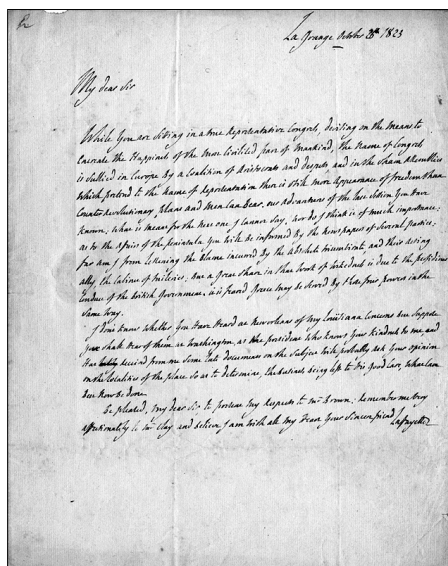 La Grange October 28th 1823
My dear Sir
While You are Sitting in a true Representative Congress, deciding on the Means to
encrease the Happiness of the More Civilized part of Mankind, the Name of Congress
is Sullied in Europe By a Coalition of Aristocrats and despots and in the Sham Assemblies
Which pretend to the Name of Representation there is Still More Appearance of freedom than
Counter Revolutionary plans and Men Can Bear. our adventures of the late Session You Have
known; What is meant for the Next one I Cannot Say, Nor do I think it of Much importance;
as to the Affairs of the peninsula You Will be informed by the Newspapers of Several parties;
far am I from lessening the Blame incurred By the Absolute and their
ally, the Cabinet of Tuileries; But a Great Share in that Work of Wickedness is due to the perfidious
Conduct of the British Government, it is feared Greece May be Served By those four powers in the
Same Way.
I don't know Whether You Have Heard at New orleans of My Louisiana Concerns But Suppose
You Shall Hear of them at Washington, as the president Who knows Your kindness to me, and
Has received from me Some Late documents on the Subject Will probably ask Your opinion
on the localities of the place So as to determine, the Business being left to His good Care, What Can
Best Now Be done.
Be pleased, my dear Sir, to present My Respects to Mrs Brown; Remember me very
affectionately to Mr Clay and believe I am With all My Heart Your Sincere friend
Lafayette